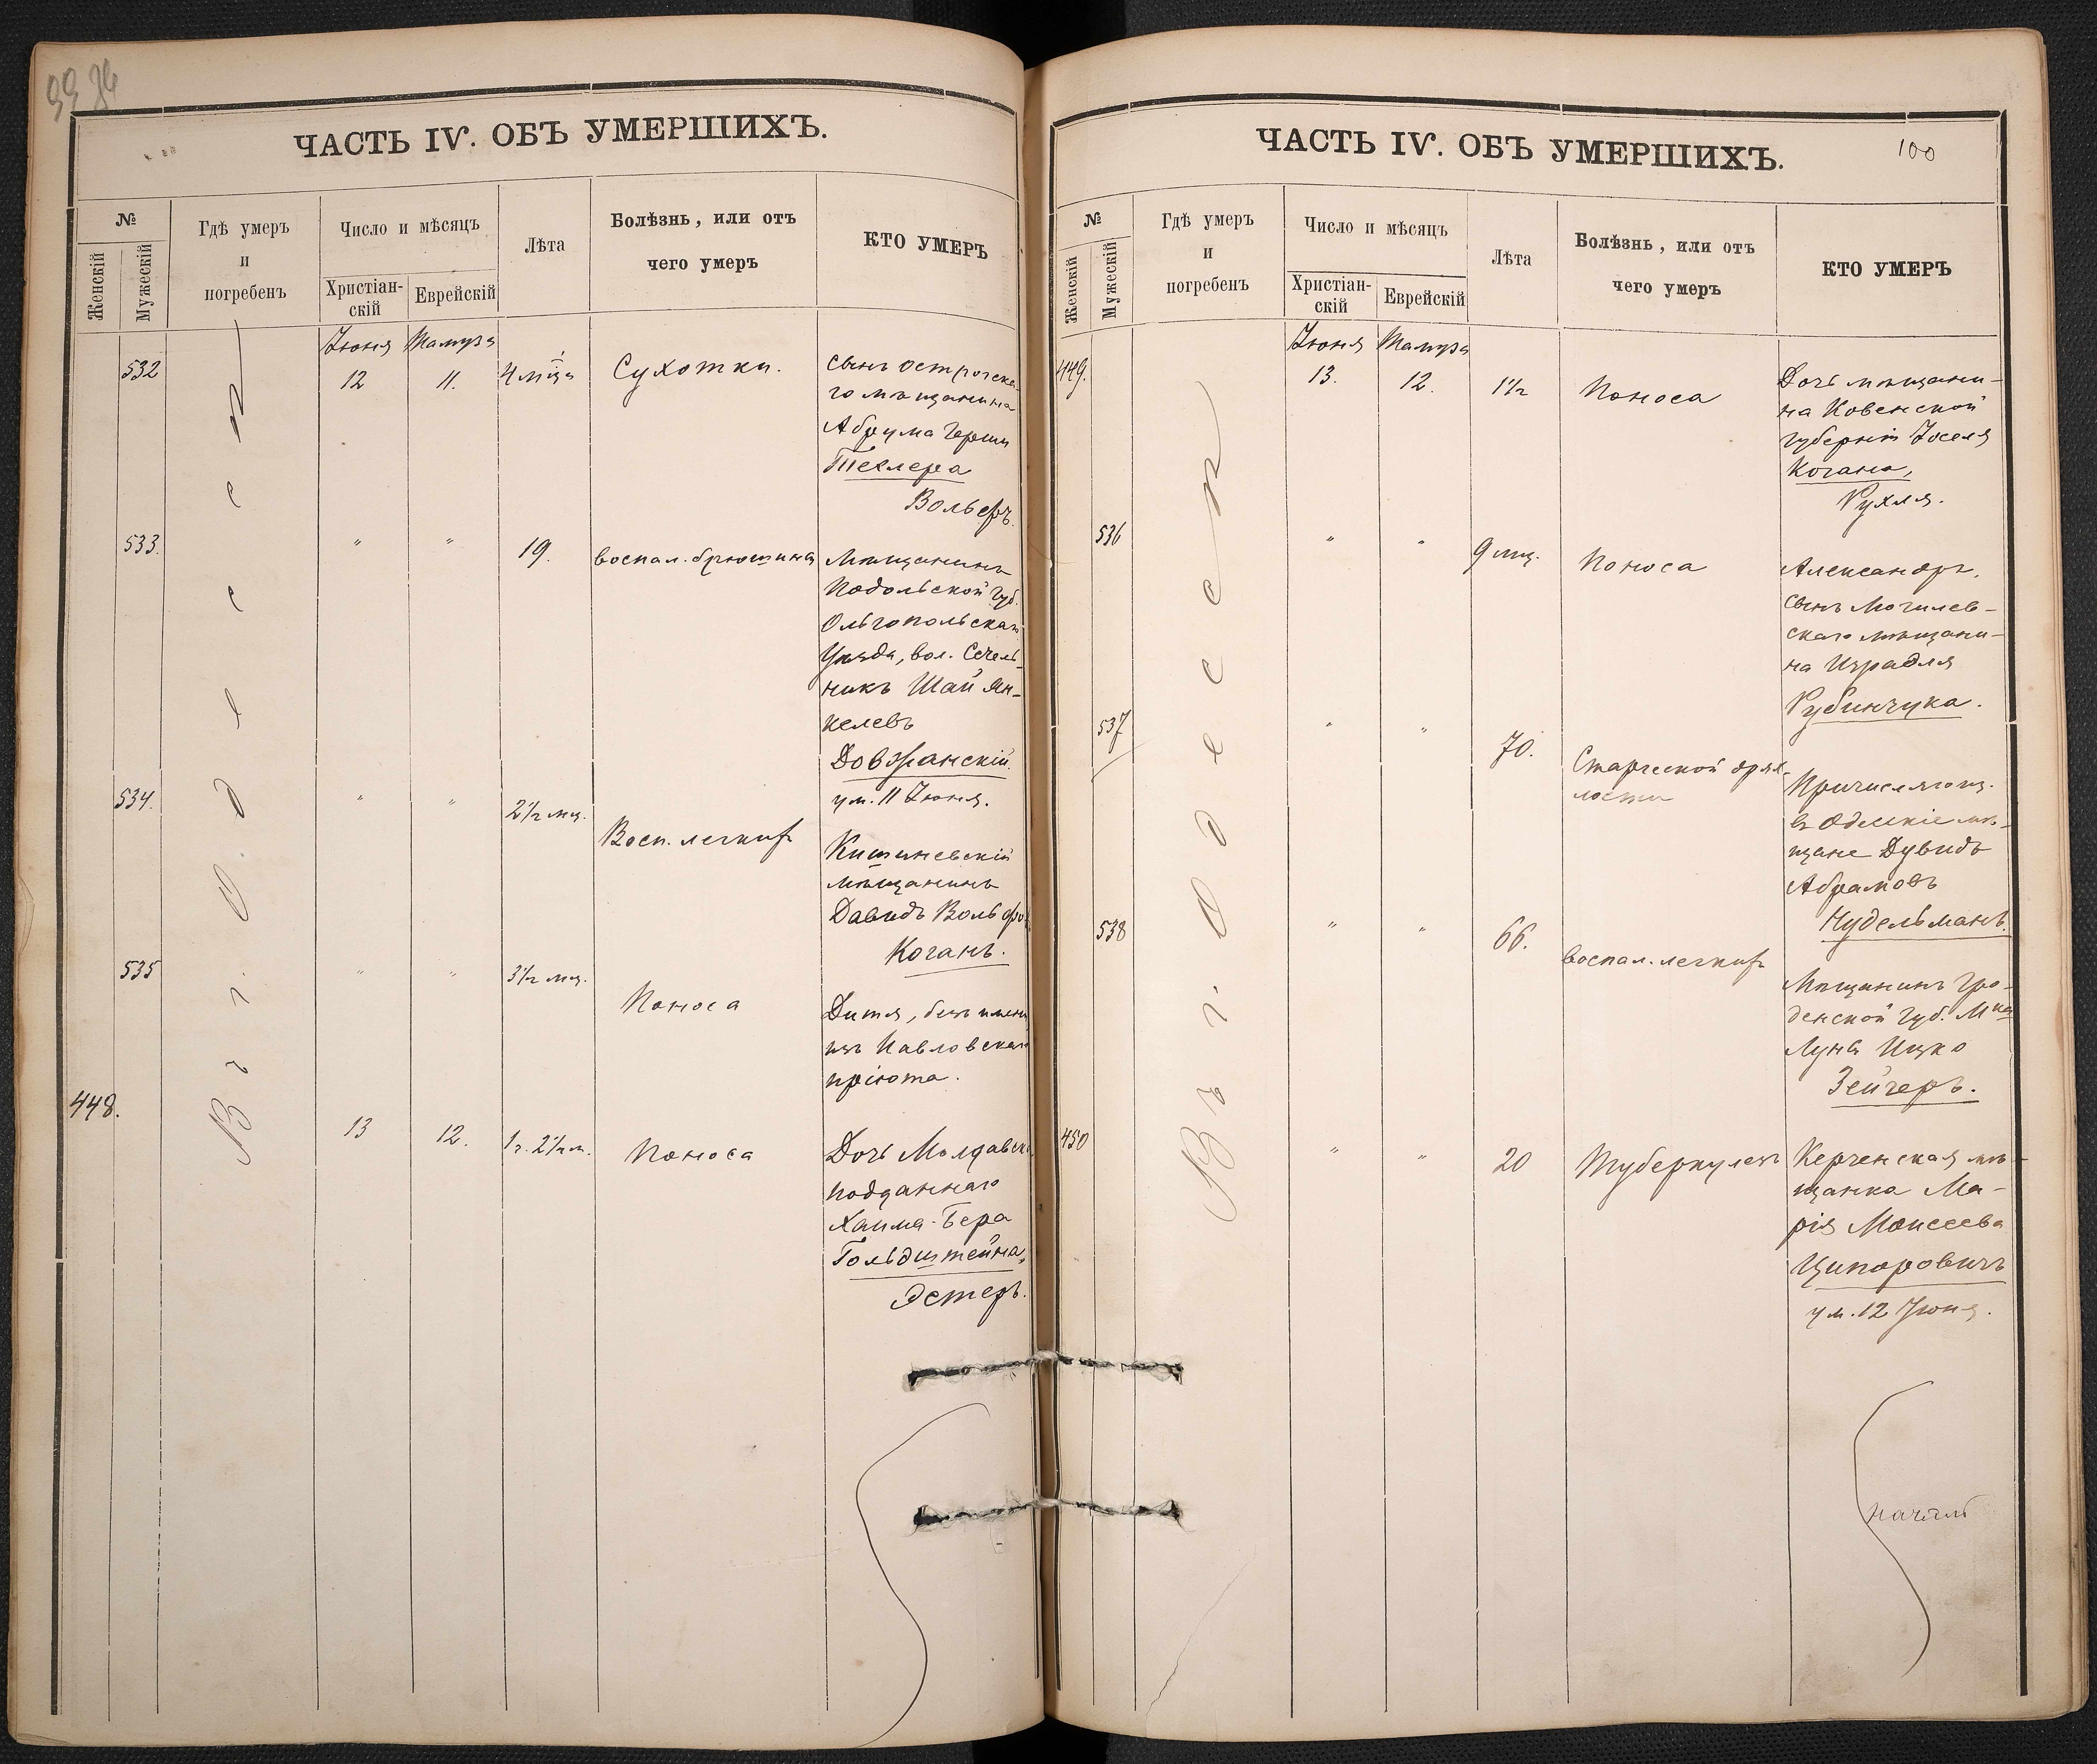 99 94
ЧАСТЬ IV. ОБЪ УМЕРШИХЪ.
№
Женскій
Мужескій
Гдѣ умеръ
и
погребенъ
Число и мѣсяцъ
Христіан-
скій
Еврейскій
Лѣта
Болѣзнь, или отъ
чего умеръ
КТО УМЕРЪ
Въ г. Одессѣ
Іюня Тамуза
532 12 11. 4 м-ца Сухотки.
сынъ Острогска-
го мѣщанина
Абрума Герши
Теслера
Вольфъ.
533. " " 19. воспал. брюшина
Мѣщанинъ
Подольской губ.
Ольгопольскаго
Уѣзда, вол. Сечель-
никъ Шай Ян-
келевъ
Довжанскій.
ум. 11 Іюня.
534. " " 2½ мц. Восп. легкихъ
Кишиневскій
мѣщанинъ
Давидъ Вольфов
Коганъ.
535 " " 3½ мц. Поноса
Дитя, безъ имени
изъ Павловскаго
пріюта.
448. 13 12. 1 г. 2½ м. Поноса
Дочь Молдавск
подданнаго
Хаима-Бера
Гольдштейна,
Эстеръ.
ЧАСТЬ IV. ОБЪ УМЕРШИХЪ.
100
№
Женскій
Мужескій
Гдѣ умеръ
и
погребенъ
Число и мѣсяцъ
Христіан-
скій
Еврейскій
Лѣта
Болѣзнь, или отъ
чего умеръ
КТО УМЕРЪ
Въ г. Одессѣ
Іюня Тамуза
449. 13. 12. 1½ Поноса
Дочь мѣщани-
на Ковенской
губерніи Іоселя
Когана,
Рухля.
536 " " 9 мц. Поноса
Александръ,
сынъ Могилев-
скаго мѣщани-
на Израэля
Рубинчика.
537 " " 70. Старческой дрях-
лости
Причисляющ.
въ Одесскіе мѣ-
щане Дувидъ
Абрамовъ
Нудельманъ.
538 " " 66. воспал. легкихъ
Мѣщанинъ Гро-
денской губ. М-ка
Луна Ицко
Зейгеръ.
450 " " 20 Туберкулезъ
Керченская мѣ-
щанка Ма-
рія Моисеева
Ципоровичъ
ум. 12 Іюня.